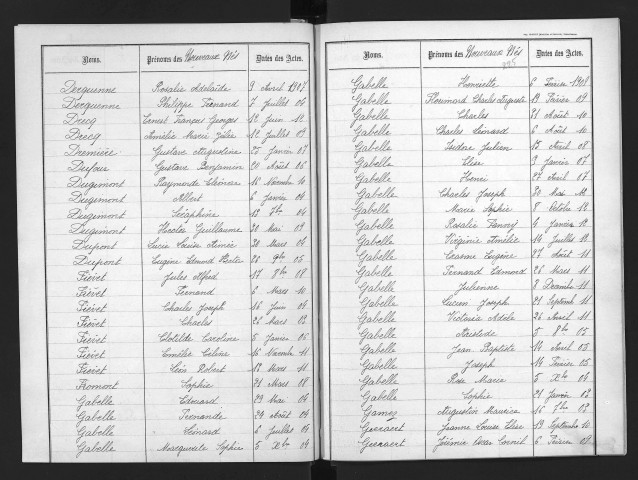 Noms. Prénoms des Nouveaux Nés Dates des Actes.
Derquenne Rosalie Adelaïde 9 Avril 1907
Derquenne Philippe Fernand 7 Juillet 06
Drecq Ernest François Georges 12 Juin 12
Drecq Amélie Marie Julie 12 Juillet 09
Gustave Augustine 25 Janvier 07
Dufour Gustave Benjamin 20 Août 06
Dugimont Raymonde Eléonore 16 Novembre 10
Dugimont Albert 6 Janvier 04
Dugimont Séraphine 18 7bre 04
Dugimont Nicolas Guillaume 20 Mai 09
Dupont Lucie Louise Aimée 30 Mars 06
Dupont Eugène Edmond 20 9bre 05
Fiévet Jules Alfred 17 8bre 08
Fiévet Fernand 6 Mars 10
Fiévet Charles Joseph 16 Juin 06
Fiévet Charles 26 Mars 03
Fiévet Clotilde Caroline 5 Janvier 06
Fiévet Emélie Céline 16 Novembre 11
Fiévet Léon Robert 18 Mars 11
Fromont Sophie 21 Mars 08
Gabelle Edouard 29 Mai 04
Gabelle Fernande 20 Août 04
Gabelle Léonard 6 Juillet 05
Gabelle Sophie 5 Xbre 04
Noms. Prénoms des Nouveaux Nés Dates des Actes.
Gabelle Henriette 6 Février 1908
Gabelle Charles Auguste 19 Février 09
Gabelle Charles 31 Août 10
Gabelle Charles Léonard 6 Août 10
Gabelle Isidore Julien 15 Avril 08
Gabelle Elise 9 Janvier 07
Gabelle Henri 27 Avril 07
Gabelle Charles Joseph 20 Mai 11
Gabelle Marie Sophie 8 Octobre 12
Gabelle Rosalie Fanny 4 Janvier 12
Gabelle Virginie Amélie 14 Juillet 12
Gabelle Eugène 27 Août 11
Gabelle Fernand Edmond 26 Mars 11
Gabelle Julienne 8 Décembre 11
Gabelle Lucien Joseph 21 Septemb 11
Gabelle Victoria Adèle 26 Avril 11
Gabelle Aristide 5 8bre 05
Gabelle Jean Baptiste 14 Avril 03
Gabelle Joseph 14 Février 05
Gabelle Rose Marie 5 Xbre 04
Gabelle Sophie 21 Janvier 03
Gamez Augustine Maurice 16 7bre 07
Geeraert Jeanne Louise Elise 19 Septembre 10
Geeraert Jérémie Oscar 6 Février 09